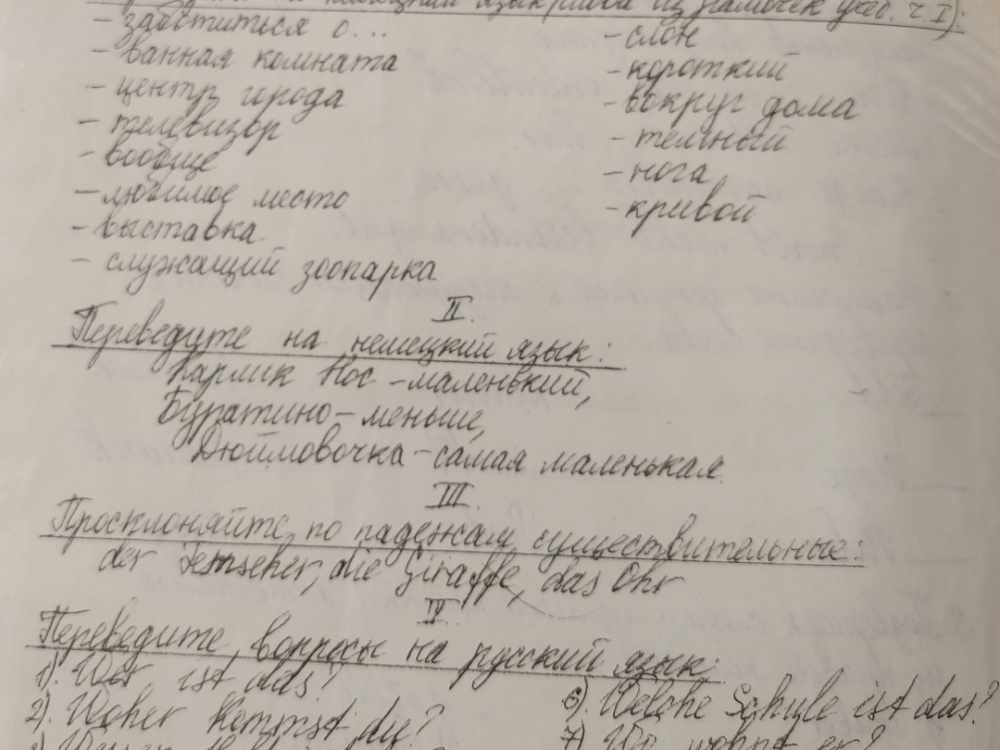 на немецкий язык слова из
– заботиться о...
– ванная комната
– центр города
– телевизор
– вообще
– любимое место
– выставка
– служащий зоопарка
– слон
– короткий
– вокруг дома
– темный
– нога
– кривой
II.
Переведите на немецкий язык:
Карлик Нос – маленький,
Буратино – меньше,
Дюймовочка – самая маленькая.
III.
Просклоняйте по падежам существительные:
der Fernseher, die Giraffe, das Ohr
IV.
Переведите вопросы на русский язык:
1). Wer ist das?
2). Woher kommst du?
6). Welche Schule ist das?
7). Wo wohnt er?